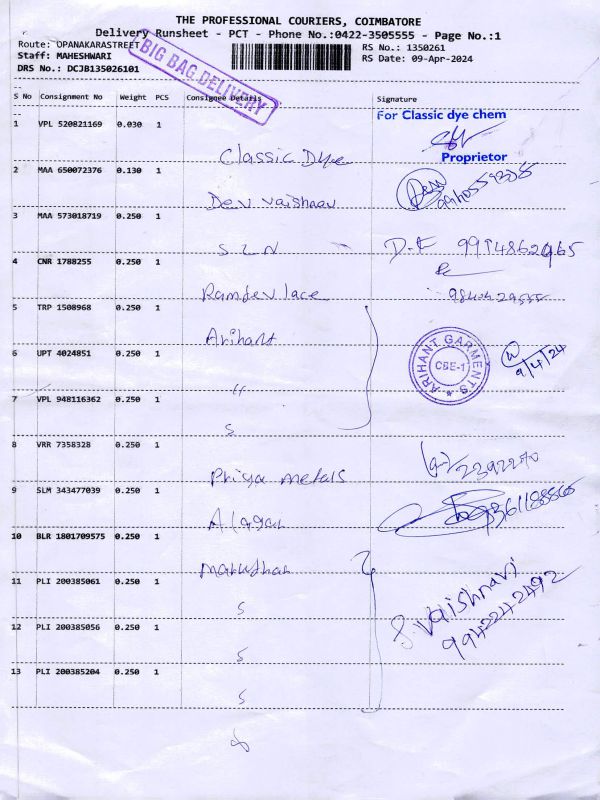 THE PROFESSIONAL COURIERS, COIMBATORE
Delivery Runsheet - PCT - Phone No.:0422-3505555 - Page No.:1
Route: OPANAKARASTREET
Staff: MAHESHWARI
DRS No.: DCJB135026101
RS No.: 1350261
RS Date: 09-Apr-2024
BIG BAG DELIVERY
S No Consignment No Weight PCS Consignee Details Signature
1 VPL 520821169 0.030 1
For Classic dye chem
Proprietor
Classic Dye
2 MAA 650072376 0.130 1
Dev vaishnav
3 MAA 573018719 0.250 1
S L N
4 CNR 1788255 0.250 1
Ramdev lace
5 TRP 1508968 0.250 1
Arihant
ARIHANT GARMENTS
CBE-1
9/4/24
6 UPT 4024851 0.250 1
"
7 VPL 948116362 0.250 1
S
8 VRR 7358328 0.250 1
Priya metals
2392270
9 SLM 343477039 0.250 1
Alagar
10 BLR 1801709575 0.250 1
Marudhar
S. Vaishnavi
9942242492
11 PLI 200385061 0.250 1
S
12 PLI 200385056 0.250 1
S
13 PLI 200385204 0.250 1
S